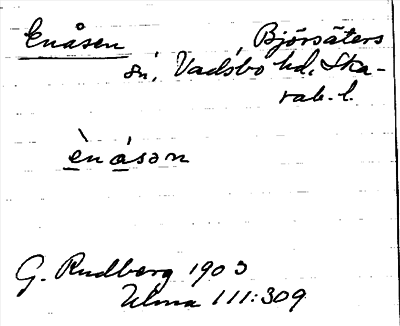 Enåsen Björsäters
sn, Vadsbo hd, Ska-
rab. l.
ènásən
G. Rudberg 1903
Ulma 111:309